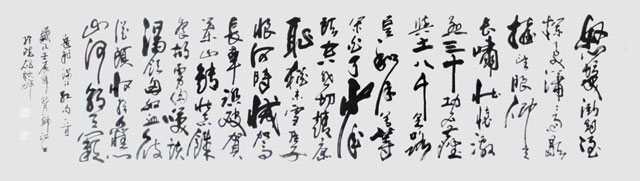 怒髮衝冠憑
欄處瀟瀟雨歇
抬望眼仰天
長嘯壯懷激
烈三十功名塵
與土八千里路
雲和月莫等
閑白了少年
頭空悲切靖康
恥猶未雪臣子
恨何時滅駕
長車踏破賀
蘭山缺壯志飢
餐胡虜肉笑談
渴飲匈奴血待
從頭收拾舊
山河朝天闕
岳飛滿江紅